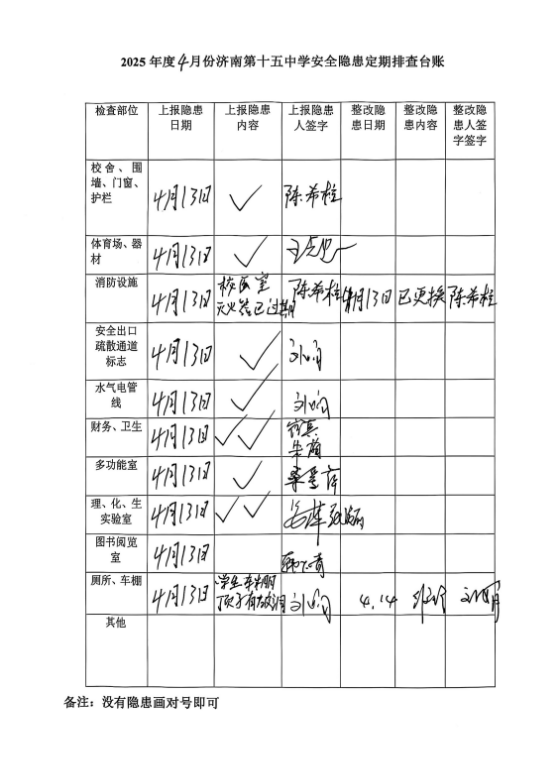 2025 年度4月份济南第十五中学安全隐患定期排查台账
检查部位 上报隐患日期 上报隐患内容 上报隐患人签字 整改隐患日期 整改隐患内容 整改隐患人签字签字
校舍、围墙、门窗、护栏 4月13日 ✓ 陈希柱
体育场、器材 4月13日 ✓
消防设施 4月13日 校医室灭火器已过期 陈希柱 4月13日 已更换 陈希柱
安全出口疏散通道标志 4月13日 ✓
水气电管线 4月13日 ✓
财务、卫生 4月13日 ✓ ✓
多功能室 4月13日 ✓
理、化、生实验室 4月13日 ✓ ✓
图书阅览室 4月13日
厕所、车棚 4月13日 学生车棚顶子有 4.14
其他
备注：没有隐患画对号即可